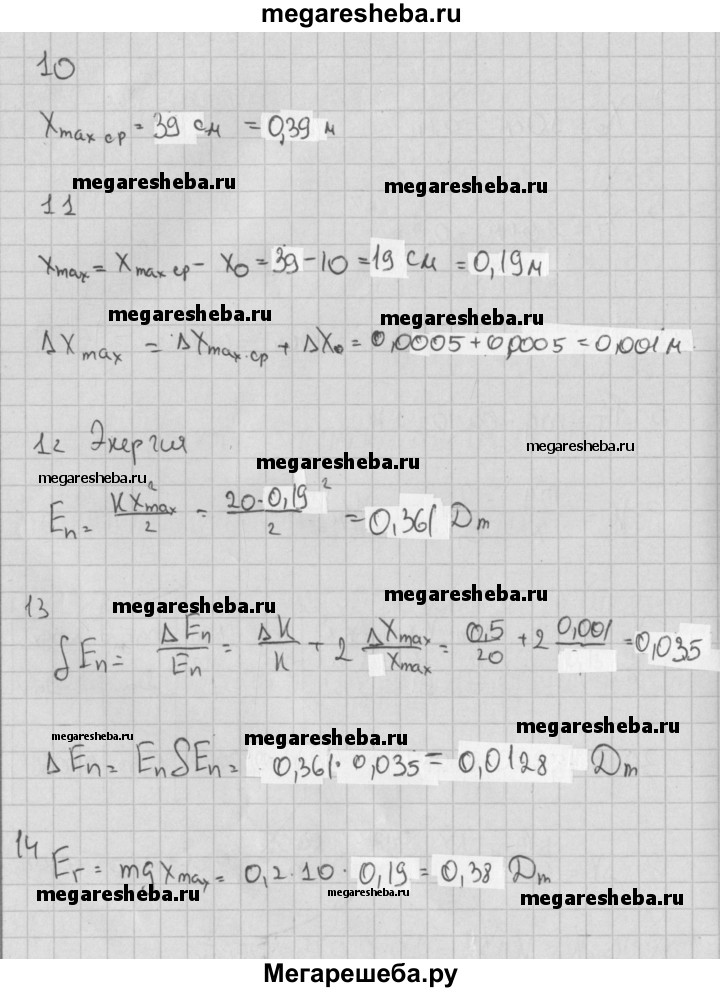 megaresheba.ru
10
Xmax ср = 39 см = 0,39 м
megaresheba.ru megaresheba.ru
11
Xmax = Xmax ср - X0 = 39-10 = 19 см = 0,19 м
megaresheba.ru megaresheba.ru
ΔXmax = ΔXmax.ср + ΔX0 = 0,0005+0,0005 = 0,001 м
12 Энергия
megaresheba.ru megaresheba.ru megaresheba.ru
Eп = KXmax²/2 = 20·0,19²/2 = 0,361 Dт
megaresheba.ru megaresheba.ru
13
δEп = ΔEп/Eп = ΔK/K + 2 ΔXmax/Xmax = 0,5/20 + 2 0,001/ = 0,035
megaresheba.ru megaresheba.ru megaresheba.ru
ΔEп = EпδEп = 0,361·0,035 = 0,0128 Dт
14
Er = mgXmax = 0,2·10·0,19 = 0,38 Dт
megaresheba.ru megaresheba.ru megaresheba.ru
Мегарешеба.ру